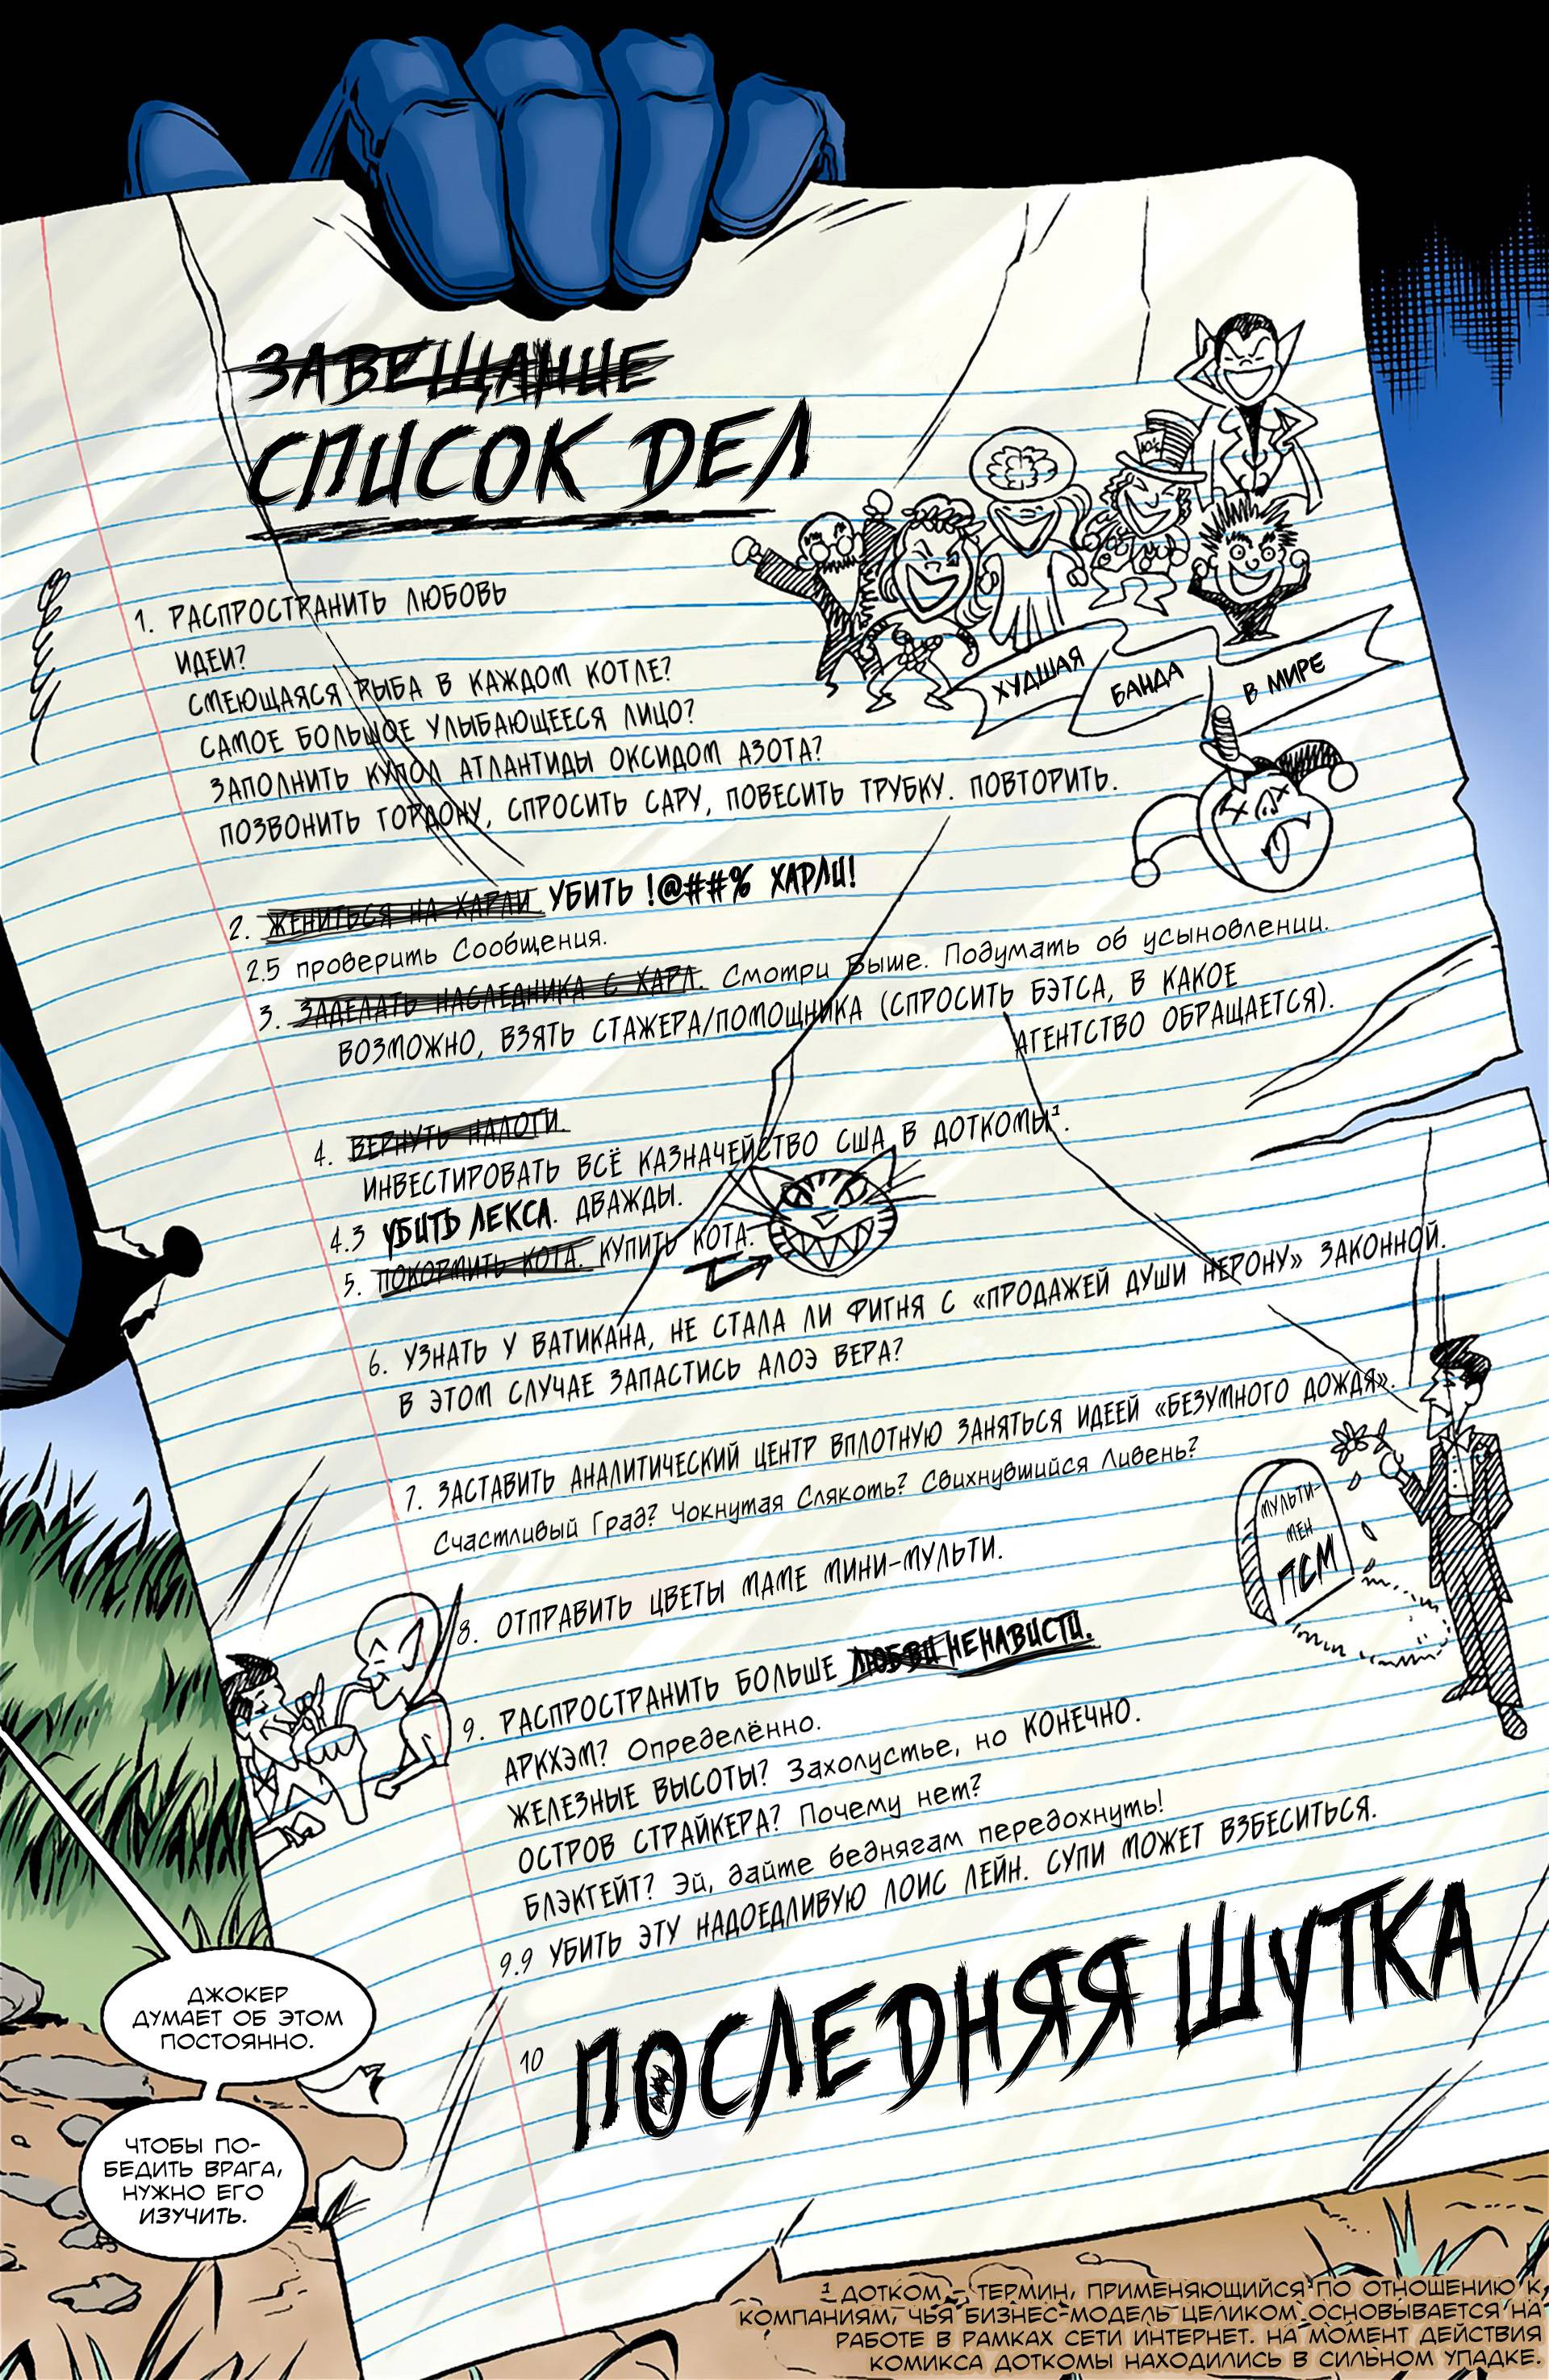 ЗАВЕЩАНИЕ
СПИСОК ДЕЛ
1. РАСПРОСТРАНИТЬ ЛЮБОВЬ
ИДЕИ?
СМЕЮЩАЯСЯ РЫБА В КАЖДОМ КОТЛЕ?
САМОЕ БОЛЬШОЕ УЛЫБАЮЩЕЕСЯ ЛИЦО?
ЗАПОЛНИТЬ КУПОЛ АТЛАНТИДЫ ОКСИДОМ АЗОТА?
ПОЗВОНИТЬ ГОРДОНУ, СПРОСИТЬ САРУ, ПОВЕСИТЬ ТРУБКУ. ПОВТОРИТЬ.
ХУДШАЯ БАНДА В МИРЕ
2. ЖЕНИТЬСЯ НА ХАРЛИ УБИТЬ !@##% ХАРЛИ!
2.5 проверить Сообщения.
3. ЗАДЕЛАТЬ НАСЛЕДНИКА С ХАРЛ. Смотри Выше. Подумать об усыновлении.
ВОЗМОЖНО, ВЗЯТЬ СТАЖЕРА/ПОМОЩНИКА (СПРОСИТЬ БЭТСА, В КАКОЕ
АГЕНТСТВО ОБРАЩАЕТСЯ).
4. ВЕРНУТЬ НАЛОГИ.
ИНВЕСТИРОВАТЬ ВСЁ КАЗНАЧЕЙСТВО США В ДОТКОМЫ¹.
4.3 УБИТЬ ЛЕКСА. ДВАЖДЫ.
5. ПОКОРМИТЬ КОТА. КУПИТЬ КОТА.
6. УЗНАТЬ У ВАТИКАНА, НЕ СТАЛА ЛИ ФИГНЯ С «ПРОДАЖЕЙ ДУШИ НЕРОНУ» ЗАКОННОЙ.
В ЭТОМ СЛУЧАЕ ЗАПАСТИСЬ АЛОЭ ВЕРА?
7. ЗАСТАВИТЬ АНАЛИТИЧЕСКИЙ ЦЕНТР ВПЛОТНУЮ ЗАНЯТЬСЯ ИДЕЕЙ «БЕЗУМНОГО ДОЖДЯ».
Счастливый Град? Чокнутая Слякоть? Свихнувшийся Ливень?
МУЛЬТИ-
МЕН
ПСМ
8. ОТПРАВИТЬ ЦВЕТЫ МАМЕ МИНИ-МУЛЬТИ.
9. РАСПРОСТРАНИТЬ БОЛЬШЕ ЛЮБВИ НЕНАВИСТИ.
АРКХЭМ? Определённо.
ЖЕЛЕЗНЫЕ ВЫСОТЫ? Захолустье, но КОНЕЧНО.
ОСТРОВ СТРАЙКЕРА? Почему нет?
БЛЭКГЕЙТ? Эй, дайте беднягам передохнуть!
9.9 УБИТЬ ЭТУ НАДОЕДЛИВУЮ ЛОИС ЛЕЙН. СУПИ МОЖЕТ ВЗБЕСИТЬСЯ.
10 ПОСЛЕДНЯЯ ШУТКА
ДЖОКЕР
ДУМАЕТ ОБ ЭТОМ
ПОСТОЯННО.
ЧТОБЫ ПО-
БЕДИТЬ ВРАГА,
НУЖНО ЕГО
ИЗУЧИТЬ.
¹ ДОТКОМ – ТЕРМИН, ПРИМЕНЯЮЩИЙСЯ ПО ОТНОШЕНИЮ К
КОМПАНИЯМ, ЧЬЯ БИЗНЕС-МОДЕЛЬ ЦЕЛИКОМ ОСНОВЫВАЕТСЯ НА
РАБОТЕ В РАМКАХ СЕТИ ИНТЕРНЕТ. НА МОМЕНТ ДЕЙСТВИЯ
КОМИКСА ДОТКОМЫ НАХОДИЛИСЬ В СИЛЬНОМ УПАДКЕ.